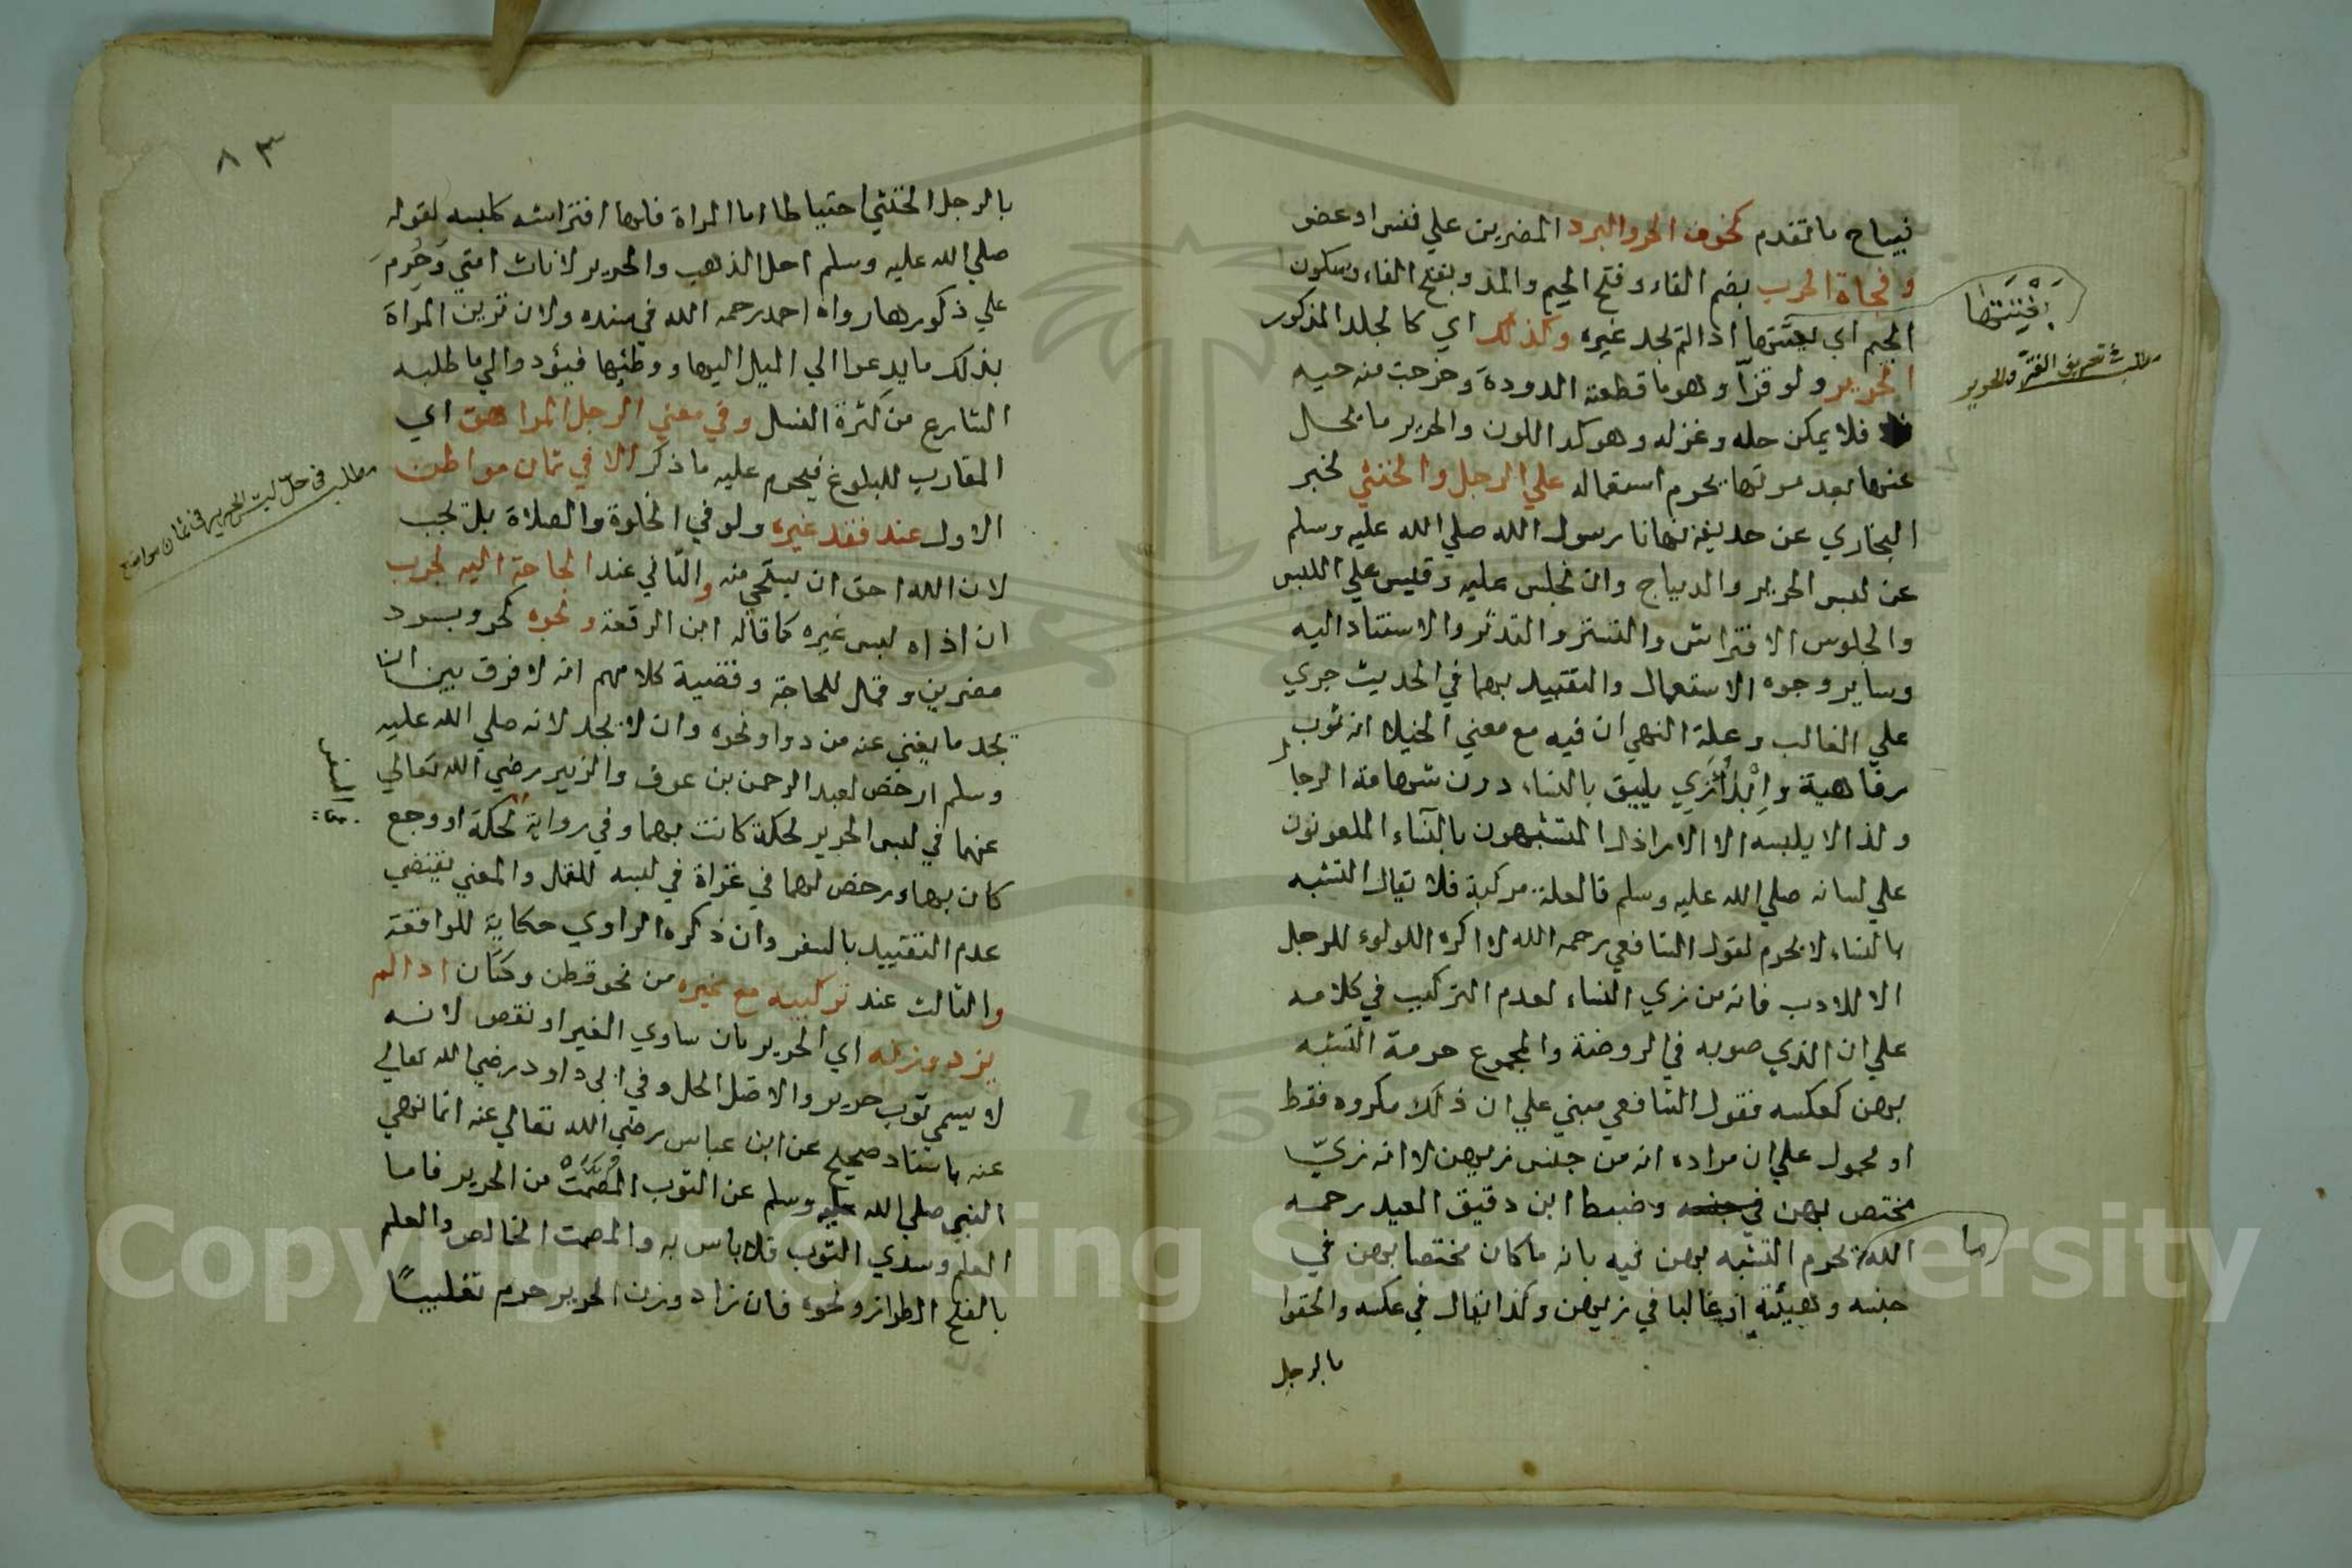 فيباح ما تقدم كخوف الحر والبرد المضرين علي نفس او عضو
وفجاة الحرب بضم الفاء وفتح الجيم والمد وبفتح الفاء وسكون
الجيم اي بغتتها اذا لم يجد غيره وكذلك اي كالجلد المذكور
الحرير ولو قزاً وهو ما قطعته الدودة وخرجت منه حيه
فلا يمكن حله وغزله وهو كمد اللون والحرير ما يحل
عنها بعد موتها يحرم استعماله علي الرجل والخنثي لخبر
البخاري عن حذيفة نهانا رسول الله صلي الله عليه وسلم
عن لبس الحرير والديباج وان نجلس عليه وقيس علي اللبس
والجلوس الافتراش والتستر والتدثر والاستناد اليه
وساير وجوه الاستعمال والتقييد بهما في الحديث جري
علي الغالب وعلة النهي ان فيه مع معني الخيلا انه ثوب
رفاهية وابداُزي يليق بالنساء دون شهامة الرجال
ولذا لا يلبسه الا الاراذل المتشبهون بالنساء الملعونون
علي لسانه صلي الله عليه وسلم فالعلة مركبة فلا يقال التشبه
بالنساء لا يحرم لقول الشافعي رحمه الله لا اكره اللولوء للرجل
الا للادب فانه من زي النساء لعدم التركيب في كلامه
علي ان الذي صوبه في الروضة والمجموع حرمة التشبه
بهن كعكسه فقول الشافعي مبني علي ان ذلك مكروه فقط
او محمول علي ان مراده انه من جنس زيهن لا انه زيّ
مختص بهن في جنسه وضبط ابن دقيق العيد رحمه
الله يحرم التشبه بهن فيه بانه ما كان مختصا بهن في
جنسه وهيئته او غالبا في زيهن وكذا يقال في عكسه والحقوا
بالرجل
بَغْتَتَهَا
مطلب تعريف القز والحرير
ما
٨٣
بالرجل الخنثي احتياطا اما المراة فلها افتراشه كلبسه لقوله
صلي الله عليه وسلم احل الذهب والحرير لاناث امتي وَحُرِمَ
علي ذكورها رواه احمد رحمه الله في مسنده ولان تزين المراة
بذلك ما يدعوا الي الميل اليها ووطئها فيؤدو الي ما طلبه
الشارع من كثرة النسل وفي معني الرجل المراهق اي
المقارب للبلوغ فيحرم عليه ما ذكر الا في ثمان مواطن
الاول عند فقد غيره ولو في الخلوة والصلاة بل تجب
لان الله احق ان يستحي منه والثاني عند الحاجة اليه لجرب
ان اذاه لبس غيره كما قاله ابن الرفعة ونحوه كحر وبرد
مضرين وقمل للحاجة وقضية كلامهم انه لا فرق بين ان
يجد ما يغني عنه من دوا ونحوه وان لا يجد لانه صلي الله عليه
وسلم ارخص لعبد الرحمن بن عوف والزبير رضي الله تعالي
عنهما في لبس الحرير لحكة كانت بهما وفي رواية لحكة او وجع
كان بهما ورخص لهما في غزاة في لبسه للقمل والمعني يقتضي
عدم التقييد بالسفر وان ذكره الراوي حكاية للواقعة
والثالث عند تركيبه مع غيره من نحو قطن وكتان اذا لم
يزد وزنه اي الحرير بان ساوي الغير او نقص لانه
لا يسمي ثوب حرير والاصل الحل وفي ابي داود رضي الله تعالي
عنه باسناد صحيح عن ابن عباس رضي الله تعالي عنه انما نهي
النبي صلي الله عليه وسلم عن الثوب المُصْمَتْ من الحرير فاما
العلم وسدي الثوب فلا باس به والمصمت الخالص والعلم
بالفتح الطراز ونحوه فان زاد وزن الحرير حرم تغليبًا
مطلب في حل لبس الحرير في ثمان مواضع
السفر
Copyright © King Saud University
1957